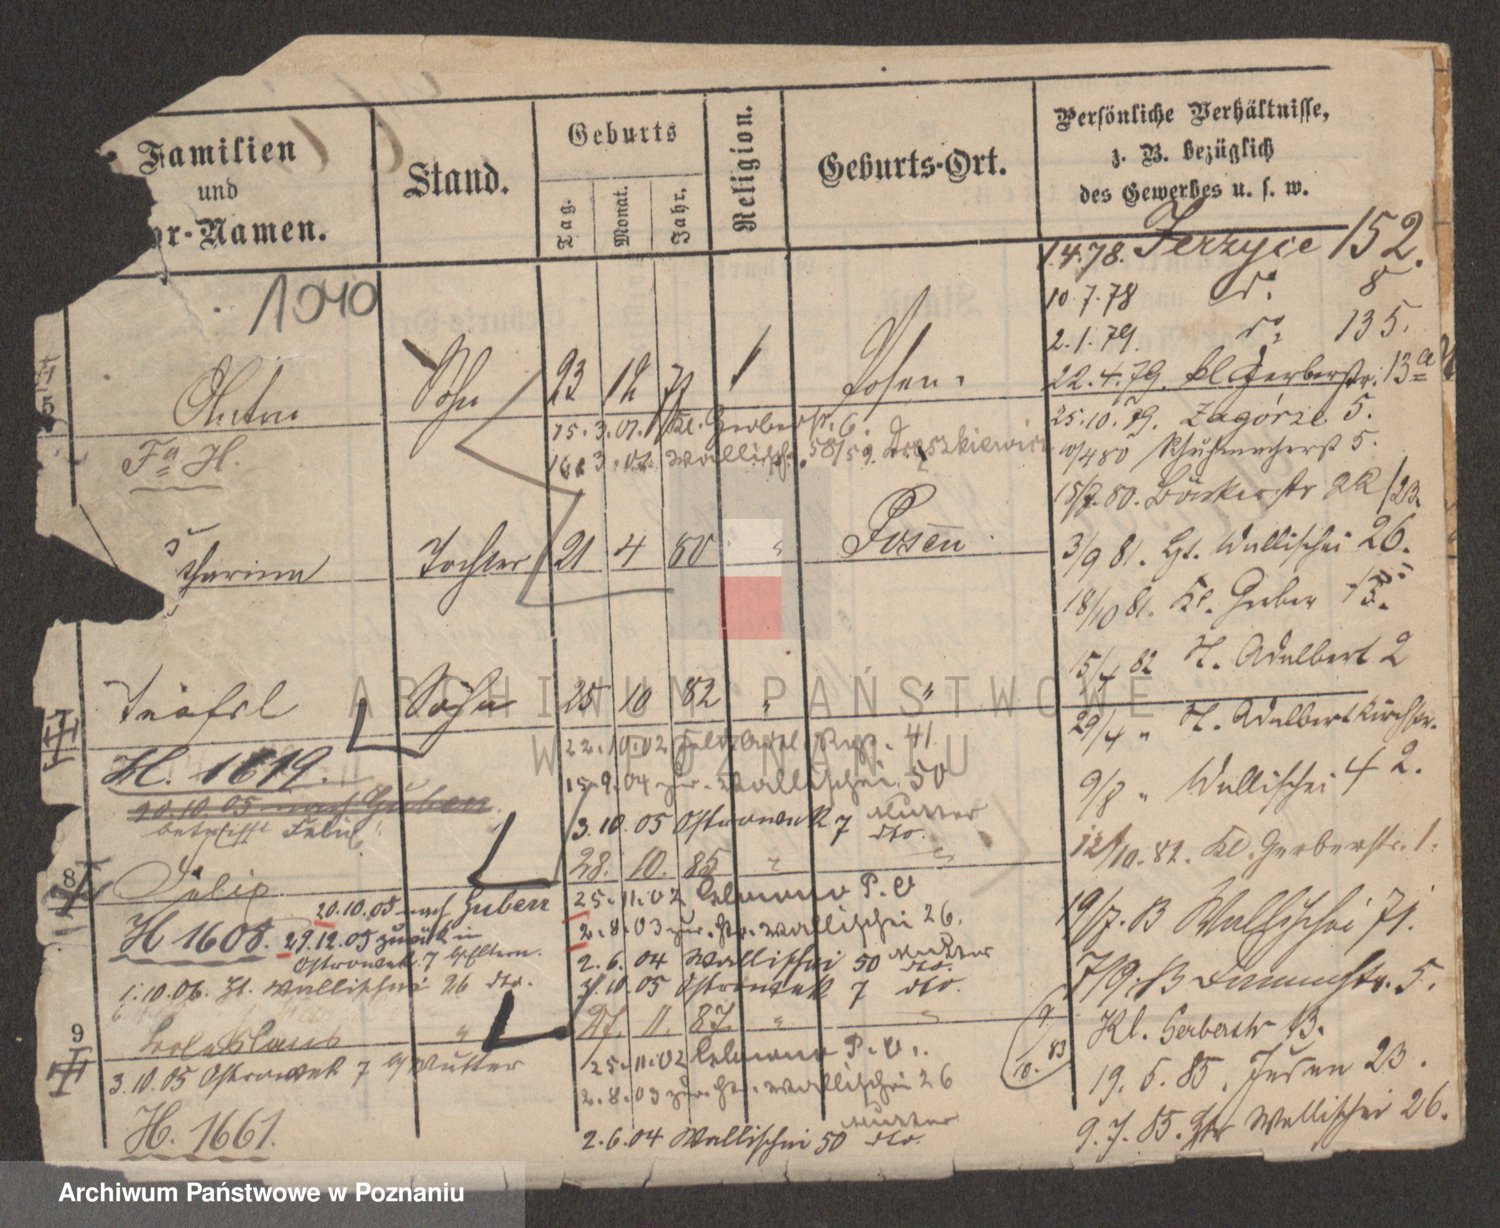 Familien
und
or-Namen.
Stand.
Geburts
Tag.
Monat.
Jahr.
Religion.
Geburts-Ort.
Persönliche Verhältnisse,
z. B. bezüglich
des Gewerbes u. s. w.
1040
1.4.78. Jerzyce 152.
10.7.78 do. 8
2.1.79. do. 135.
22.4.79. kl Gerberstr. 13a
5
Anton Sohn 23 12 Posen.
25.10.79. Zagórze 5.
Fa H.
15.3.01. Kl. Gerberstr. 6.
Wallisch. 58/59.
10/4 80 Schuhmacherstr 5.
15/7. 80. Bäckerstr
tharina Tochter 21 4 80 Posen
3/9 81. Gr. Wallischei 26.
18/10 81. Kl. Gerber 13.
15/4 82 St. Adalbert 2
Teofil Sohn 25 10 82 " "
29/4 " St. Adalbertkirchstr.
H. 1619.
22.10.02 41
15.9.04 zur. Wallischei 50
9/8 " Wallischei 42.
20.10.05 nach Guben.
betrifft Felix
3.10.05 Ostrowek 7 Mutter dto.
12/10. 82. Kl. Gerberstr. 1.
8
Felix 28. 10. 85 " "
20.10.05 nach Guben
25.11.02 P. O
19/7. 83 Wallischei 71.
H 1608. 29.12.05 zurück in
Ostrowek 7 b/Eltern.
2.8.03 zur. Gr. Wallischei 26.
2.6.04 Wallischei 50 Mutter dto.
7/9. 83 Dammstr. 5.
1.10.06. St. Wallischei 26 dto.
3.10.05 Ostrowek 7 dto.
9
Boleslaus " 27. 11. 87. " "
9/10. 83 Kl. Gerberstr 13.
3.10.05 Ostrowek 7 b/Mutter
25.11.02 P. O.
2.8.03 zur. Gr. Wallischei 26
19. 5. 85. Juden 23.
H. 1661.
2.6.04 Wallischei 50 Mutter dto.
9.7.85. Gr Wallischei 26.
ARCHIWUM PAŃSTWOWE
W POZNANIU
Archiwum Państwowe w Poznaniu